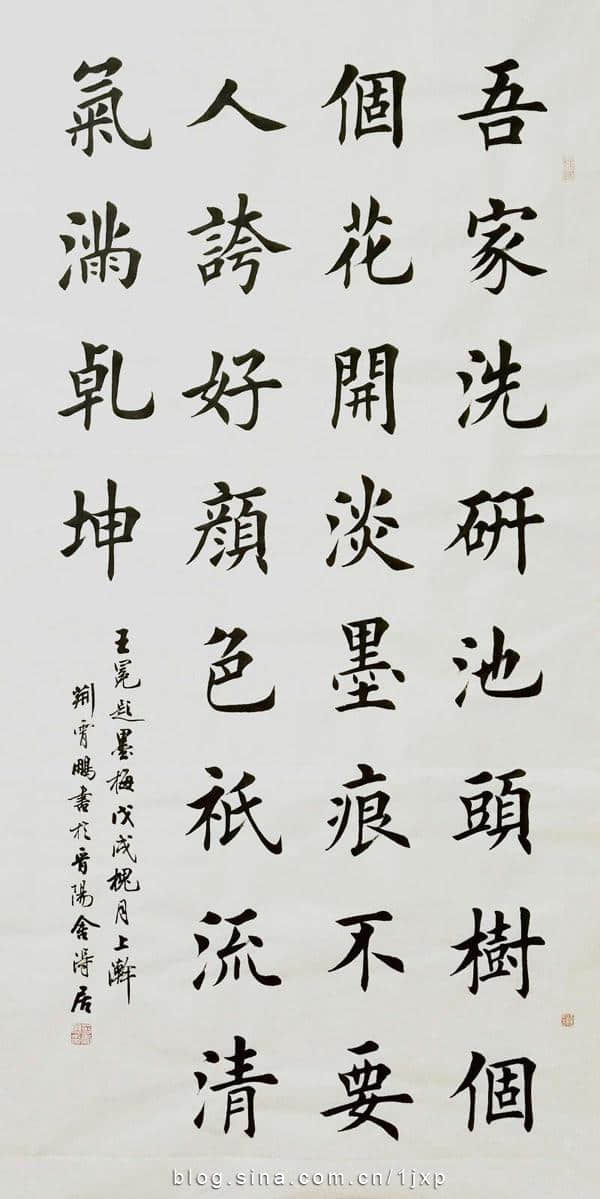 吾家洗硏池頭樹個
個花開淡墨痕不要
人誇好顔色祇流清
氣滿乹坤
王冕題墨梅戊戌槐月上澣
荆霄鵬書於晋陽舍得居
blog.sina.com.cn/1jxp